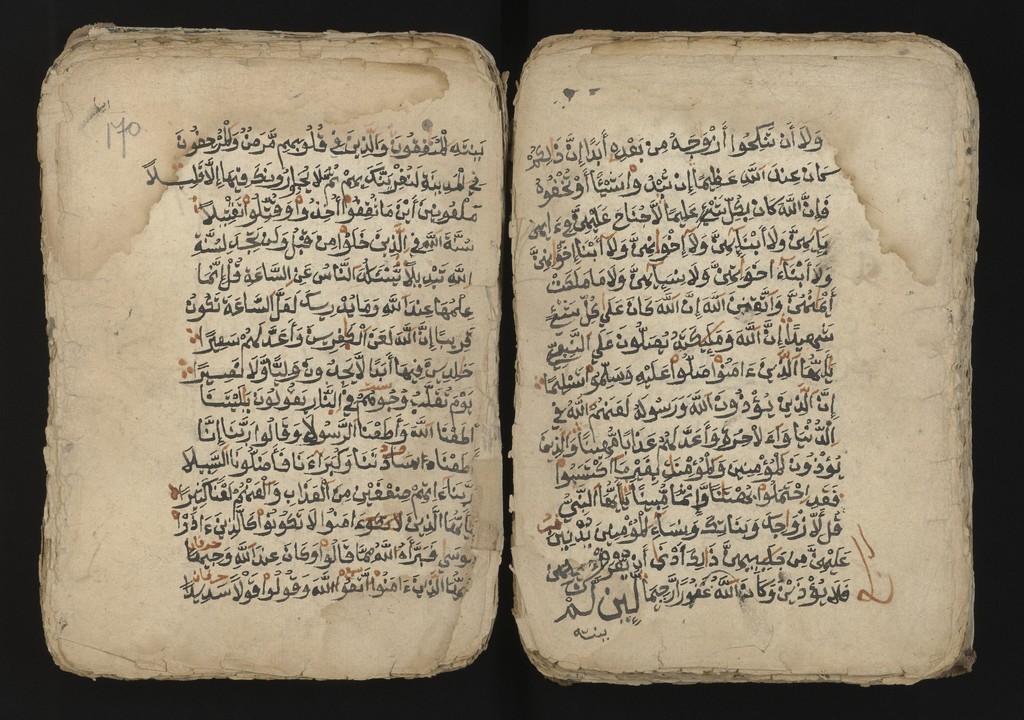 وَلَا أَن تَنكِحُوا أَزْوَٰجَهُ مِنۢ بَعْدِهِ أَبَدًا إِنَّ ذَٰلِكُمْ
كَانَ عِندَ اللَّهِ عَظِيمًا إِن تُبْدُوا شَيْـًٔا أَوْ تُخْفُوهُ
فَإِنَّ اللَّهَ كَانَ بِكُلِّ شَيْءٍ عَلِيمًا لَّا جُنَاحَ عَلَيْهِنَّ فِي ءَابَا
ئِهِنَّ وَلَا أَبْنَائِهِنَّ وَلَا إِخْوَٰنِهِنَّ وَلَا أَبْنَاءِ إِخْوَٰنِهِنَّ
وَلَا أَبْنَاءِ أَخَوَٰتِهِنَّ وَلَا نِسَائِهِنَّ وَلَا مَا مَلَكَتْ
أَيْمَٰنُهُنَّ وَاتَّقِينَ اللَّهَ إِنَّ اللَّهَ كَانَ عَلَىٰ كُلِّ شَيْءٍ
شَهِيدًا إِنَّ اللَّهَ وَمَلَٰئِكَتَهُ يُصَلُّونَ عَلَى النَّبِيِّ
يَٰأَيُّهَا الَّذِينَ ءَامَنُوا صَلُّوا عَلَيْهِ وَسَلِّمُوا تَسْلِيمًا
إِنَّ الَّذِينَ يُؤْذُونَ اللَّهَ وَرَسُولَهُ لَعَنَهُمُ اللَّهُ فِي
الدُّنْيَا وَالْءَاخِرَةِ وَأَعَدَّ لَهُمْ عَذَابًا مُّهِينًا وَالَّذِينَ
يُؤْذُونَ الْمُؤْمِنِينَ وَالْمُؤْمِنَٰتِ بِغَيْرِ مَا اكْتَسَبُوا
فَقَدِ احْتَمَلُوا بُهْتَٰنًا وَإِثْمًا مُّبِينًا يَٰأَيُّهَا النَّبِيُّ
قُل لِّأَزْوَٰجِكَ وَبَنَاتِكَ وَنِسَاءِ الْمُؤْمِنِينَ يُدْنِينَ
عَلَيْهِنَّ مِن جَلَٰبِيبِهِنَّ ذَٰلِكَ أَدْنَىٰ أَن يُعْرَفْنَ
فَلَا يُؤْذَيْنَ وَكَانَ اللَّهُ غَفُورًا رَّحِيمًا لَّئِن لَّمْ
ينته
170
يَنتَهِ الْمُنَٰفِقُونَ وَالَّذِينَ فِي قُلُوبِهِم مَّرَضٌ وَالْمُرْجِفُونَ
فِي الْمَدِينَةِ لَنُغْرِيَنَّكَ بِهِمْ ثُمَّ لَا يُجَاوِرُونَكَ فِيهَا إِلَّا قَلِيلًا
مَّلْعُونِينَ أَيْنَمَا ثُقِفُوا أُخِذُوا وَقُتِّلُوا تَقْتِيلًا
سُنَّةَ اللَّهِ فِي الَّذِينَ خَلَوْا مِن قَبْلُ وَلَن تَجِدَ لِسُنَّةِ
اللَّهِ تَبْدِيلًا يَسْـَٔلُكَ النَّاسُ عَنِ السَّاعَةِ قُلْ إِنَّمَا
عِلْمُهَا عِندَ اللَّهِ وَمَا يُدْرِيكَ لَعَلَّ السَّاعَةَ تَكُونُ
قَرِيبًا إِنَّ اللَّهَ لَعَنَ الْكَٰفِرِينَ وَأَعَدَّ لَهُمْ سَعِيرًا
خَٰلِدِينَ فِيهَا أَبَدًا لَّا يَجِدُونَ وَلِيًّا وَلَا نَصِيرًا
يَوْمَ تُقَلَّبُ وُجُوهُهُمْ فِي النَّارِ يَقُولُونَ يَٰلَيْتَنَا
أَطَعْنَا اللَّهَ وَأَطَعْنَا الرَّسُولَا وَقَالُوا رَبَّنَا إِنَّا
أَطَعْنَا سَادَتَنَا وَكُبَرَاءَنَا فَأَضَلُّونَا السَّبِيلَا
رَبَّنَا ءَاتِهِمْ ضِعْفَيْنِ مِنَ الْعَذَابِ وَالْعَنْهُمْ لَعْنًا كَبِيرًا
يَٰأَيُّهَا الَّذِينَ ءَامَنُوا لَا تَكُونُوا كَالَّذِينَ ءَاذَوْا
مُوسَىٰ فَبَرَّأَهُ اللَّهُ مِمَّا قَالُوا وَكَانَ عِندَ اللَّهِ وَجِيهًا
يَٰأَيُّهَا الَّذِينَ ءَامَنُوا اتَّقُوا اللَّهَ وَقُولُوا قَوْلًا سَدِيدًا